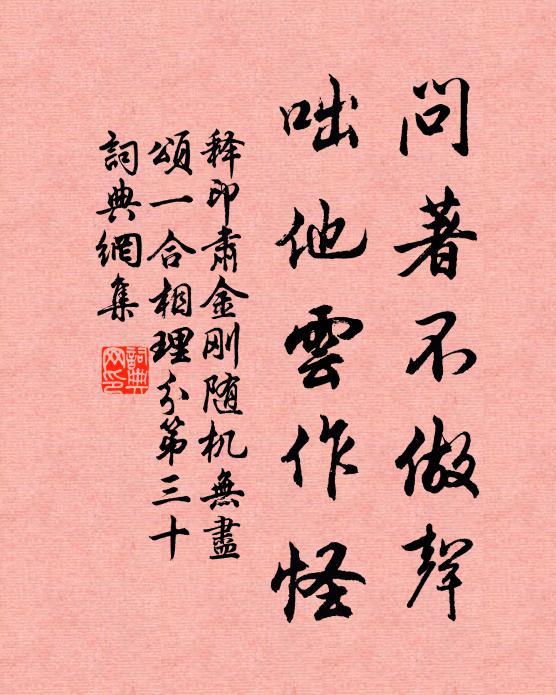 問著不做聲
咄他雲作怪
释印肃金刚随机無盡
頌一合相理分第三十
詞典網集
詞典
网印